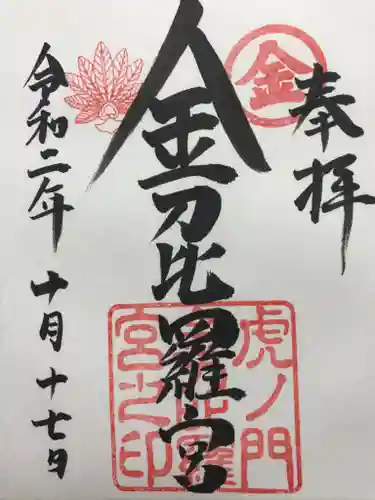 奉拝
金
金刀比羅宮
虎ノ門
金刀比羅
宮之印
令和二年 十月 十七日